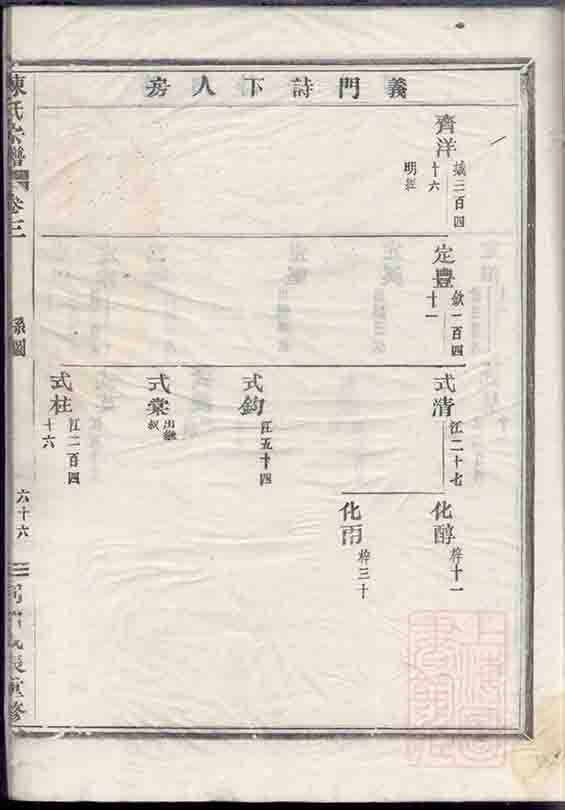 義門詩下人房
齊洋
城三百四
十六
明經
定豐
欽一百四
十一
式清
江二十七
式鈞
江五十四
式棠
出繼
叔
式柱
江一百四
十六
化醇
梓十一
化雨
梓三十
陳氏宗譜
卷三
系圖
六十六